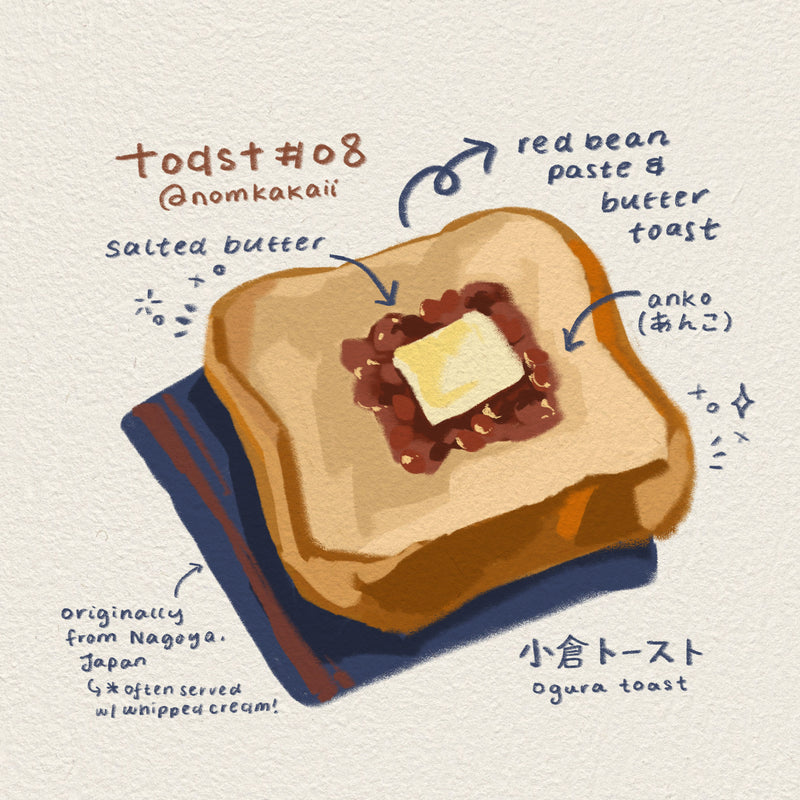 toast #08
@nomkakaii
red bean
paste &
butter
toast
salted butter
anko
(あんこ)
originally
from Nagoya.
Japan
↳ * often served
w/ whipped cream!
小倉トースト
ogura toast